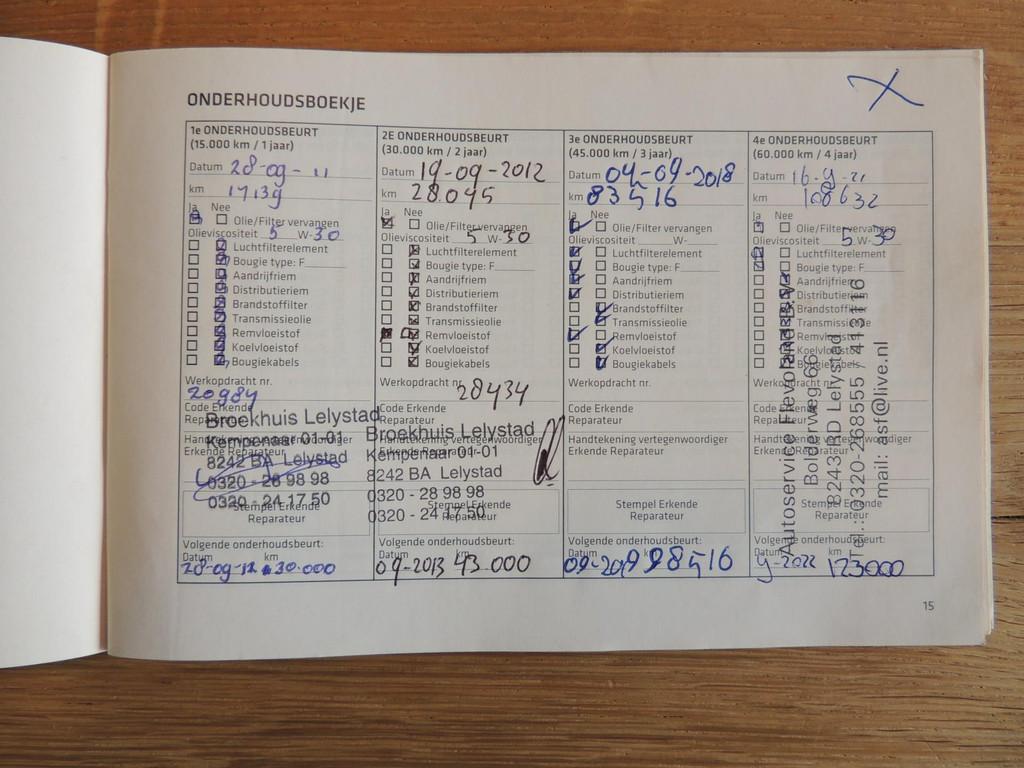 ONDERHOUDSBOEKJE
1e ONDERHOUDSBEURT
(15.000 km / 1 jaar)
Datum 28-09-11
km 17139
Ja Nee
Olie/Filter vervangen
Olieviscositeit 5 W-30
Luchtfilterelement
Bougie type: F
Aandrijfriem
Distributieriem
Brandstoffilter
Transmissieolie
Remvloeistof
Koelvloeistof
Bougiekabels
Werkopdracht nr.
20984
Code Erkende
Reparateur
Broekhuis Lelystad
Handtekening vertegenwoordiger
Kempenaar 01-01
Erkende Reparateur
8242 BA Lelystad
0320 - 28 98 98
0320 - 24 17 50
Stempel Erkende
Reparateur
Volgende onderhoudsbeurt:
Datum km
28-09-12 30.000
2E ONDERHOUDSBEURT
(30.000 km / 2 jaar)
Datum 19-09-2012
km 28.095
Ja Nee
Olie/Filter vervangen
Olieviscositeit 5 W-30
Luchtfilterelement
Bougie type: F
Aandrijfriem
Distributieriem
Brandstoffilter
Transmissieolie
Remvloeistof
Koelvloeistof
Bougiekabels
Werkopdracht nr.
28434
Code Erkende
Reparateur
Broekhuis Lelystad
Handtekening vertegenwoordiger
Kempenaar 01-01
Erkende Reparateur
8242 BA Lelystad
0320 - 28 98 98
0320 - 24 17 50
Stempel Erkende
Reparateur
Volgende onderhoudsbeurt:
Datum km
09-2013 43.000
3e ONDERHOUDSBEURT
(45.000 km / 3 jaar)
Datum 04-09-2018
km 83516
Ja Nee
Olie/Filter vervangen
Olieviscositeit W-
Luchtfilterelement
Bougie type: F
Aandrijfriem
Distributieriem
Brandstoffilter
Transmissieolie
Remvloeistof
Koelvloeistof
Bougiekabels
Werkopdracht nr.
Code Erkende
Reparateur
Handtekening vertegenwoordiger
Erkende Reparateur
Stempel Erkende
Reparateur
Volgende onderhoudsbeurt:
Datum km
09-2019 98516
4e ONDERHOUDSBEURT
(60.000 km / 4 jaar)
Datum 16-9-21
km 108632
Ja Nee
Olie/Filter vervangen
Olieviscositeit 5 W-30
Luchtfilterelement
Bougie type: F
Aandrijfriem
Distributieriem
Brandstoffilter
Transmissieolie
Remvloeistof
Koelvloeistof
Bougiekabels
Werkopdracht nr.
Code Erkende
Reparateur
Handtekening vertegenwoordiger
Erkende Reparateur
Stempel Erkende
Reparateur
Autoservice Flevoland B.V.
Bolderweg 66
8243 RD Lelystad
Tel.: 0320-268555 / 413116
mail: asf@live.nl
Volgende onderhoudsbeurt:
Datum km
9-2022 123000
15